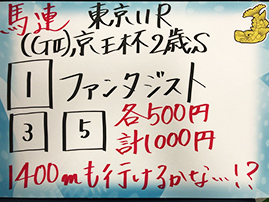 馬連 東京11R
(GⅡ)京王杯2歳S
1 ファンタジスト
3 5 各500円
計1000円
1400mも行けるかな…!?